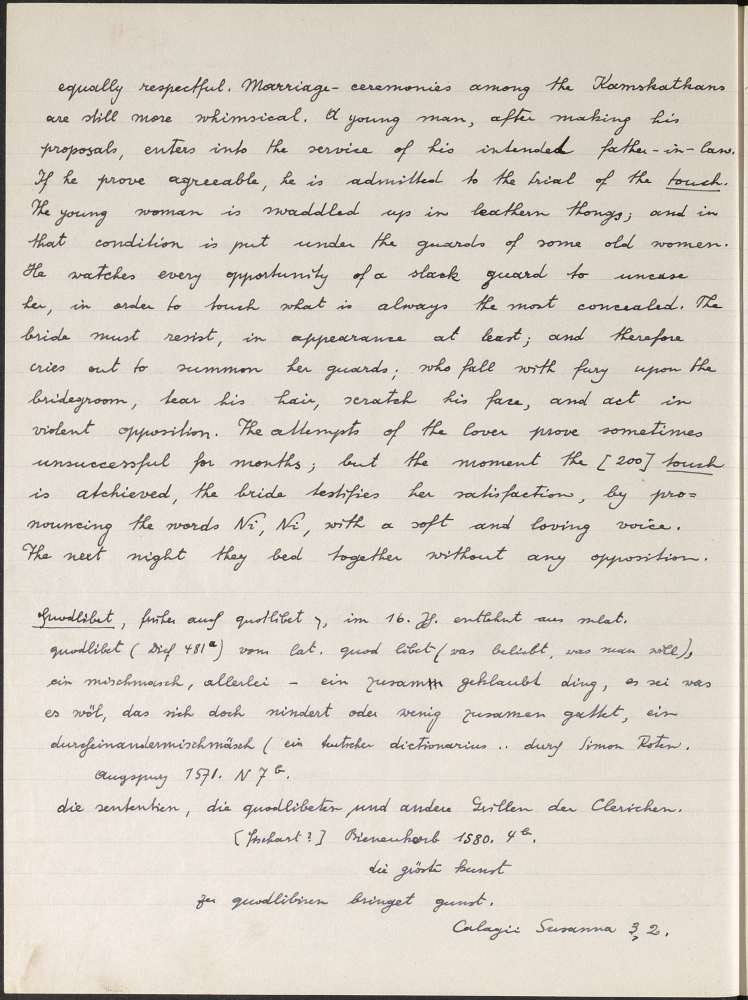 equally respectful. Marriage-ceremonies among the Kamskatkans
are still more whimsical. A young man, after making his
proposals, enters into the service of his intended father-in-law.
If he prove agreeable, he is admitted to the trial of the touch.
The young woman is swaddled up in leathern thongs; and in
that condition is put under the guards of some old women.
He watches every opportunity of a slack guard to uncase
her, in order to touch what is always the most concealed. The
bride must resist, in appearance at least; and therefore
cries out to summon her guards; who fall with fury upon the
bridegroom, tear his hair, scratch his face, and act in
violent opposition. The attempts of the lover prove sometimes
unsuccessful for months; but the moment the [200] touch
is atchieved, the bride testifies her satisfaction, by pro=
nouncing the words Ni, Ni, with a soft and loving voice.
The next night they bed together without any opposition.
Quodlibet, früher auch quotlibet n, im 16. Jh. entlehnt aus mlat.
quodlibet (Dief 481a) vom lat. quod libet (was beliebt, was man will),
ein mischmasch, allerlei - ein zusamm geklaubt ding, es sei was
es wöl, das sich doch nindert oder wenig zusamen gattet, ein
durcheinandermischmäsch (ein teutscher dictionarius .. durch Simon Roten.
Augspurg 1571. N 7b.
die sententien, die quodlibeten und andere Grillen der Clerichen.
[Fischart?] Bienenkorb 1580. 4b.
die gröste kunst
zu quodlibiren bringet gunst.
Calagii Susanna 3, 2.